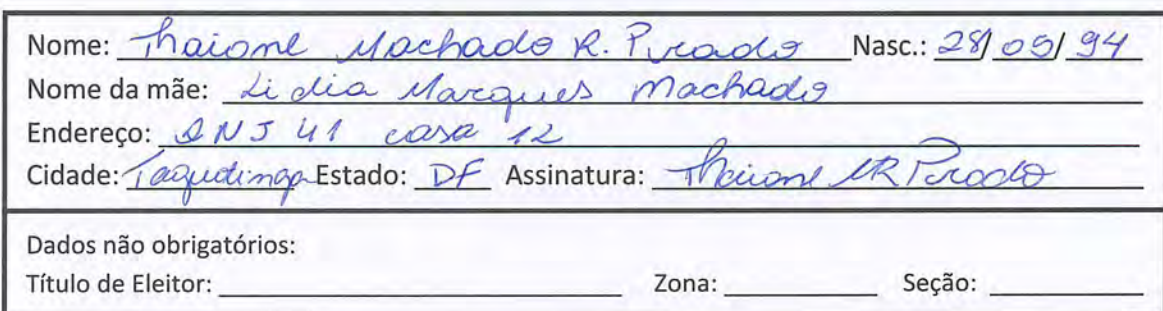 Nome: Thaione Machado R. Prado Nasc.: 28/09/94
Nome da mãe: Lidia Marques Machado
Endereço: QNJ 41 casa 12
Cidade: Taguatinga Estado: DF Assinatura: Thaione MR Prado
Dados não obrigatórios:
Título de Eleitor: Zona: Seção: